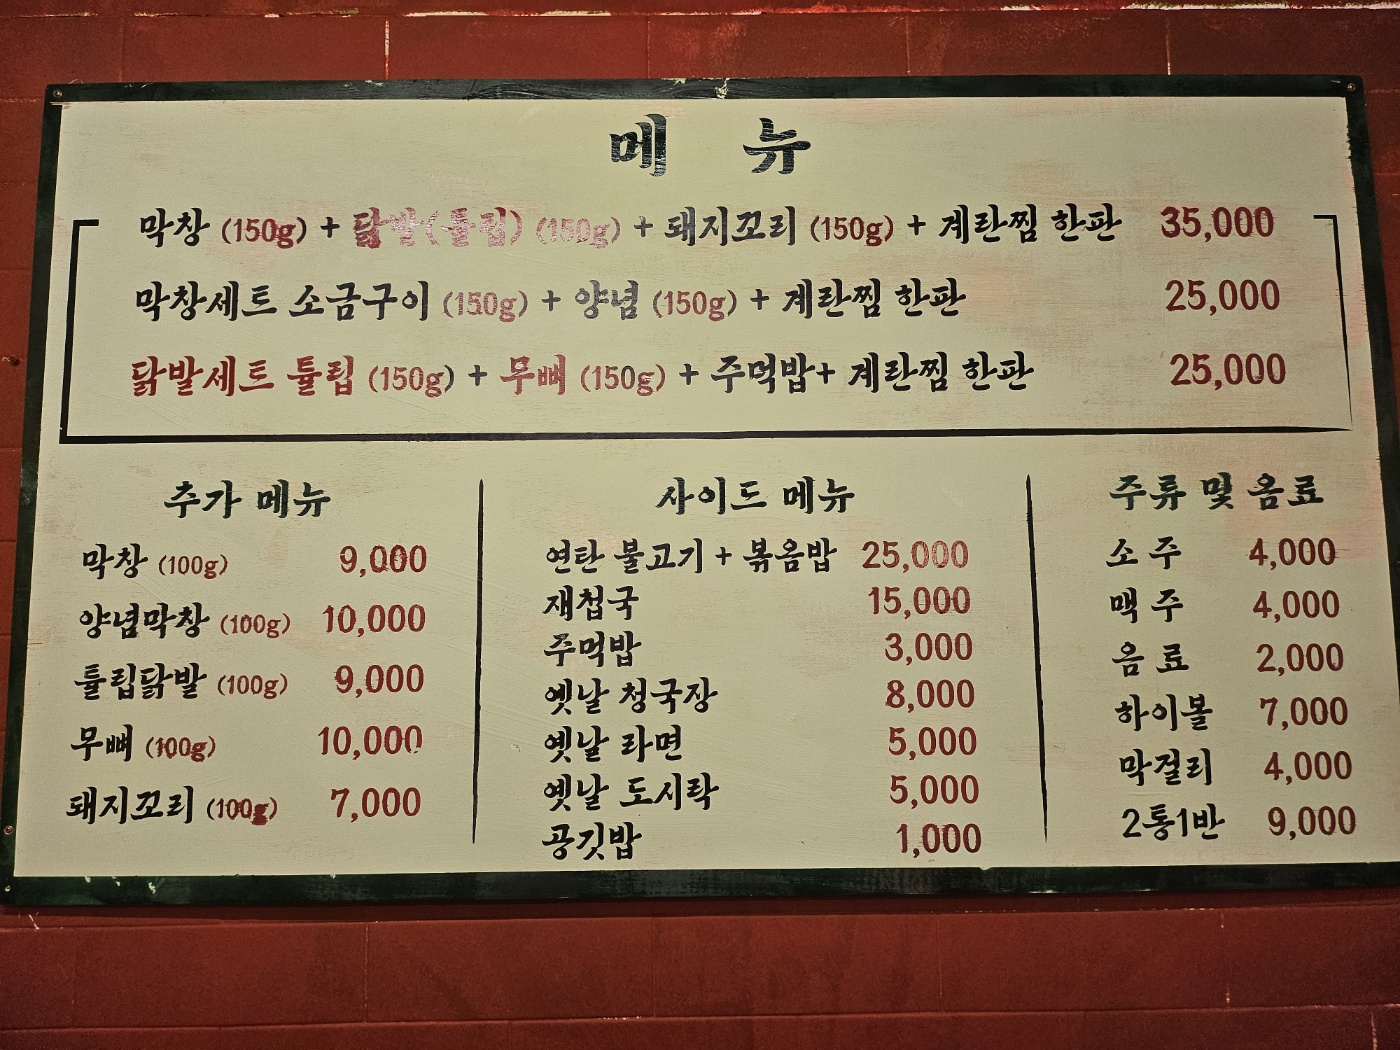 메 뉴
막창 (150g) + 닭발(튤립) (150g) + 돼지꼬리 (150g) + 계란찜 한판 35,000
막창세트 소금구이 (150g) + 양념 (150g) + 계란찜 한판 25,000
닭발세트 튤립 (150g) + 무뼈 (150g) + 주먹밥+ 계란찜 한판 25,000
추가 메뉴
막창 (100g) 9,000
양념막창 (100g) 10,000
튤립닭발 (100g) 9,000
무뼈 (100g) 10,000
돼지꼬리 (100g) 7,000
사이드 메뉴
연탄 불고기 + 볶음밥 25,000
재첩국 15,000
주먹밥 3,000
옛날 청국장 8,000
옛날 라면 5,000
옛날 도시락 5,000
공깃밥 1,000
주류 및 음료
소 주 4,000
맥 주 4,000
음 료 2,000
하이볼 7,000
막걸리 4,000
2통1반 9,000